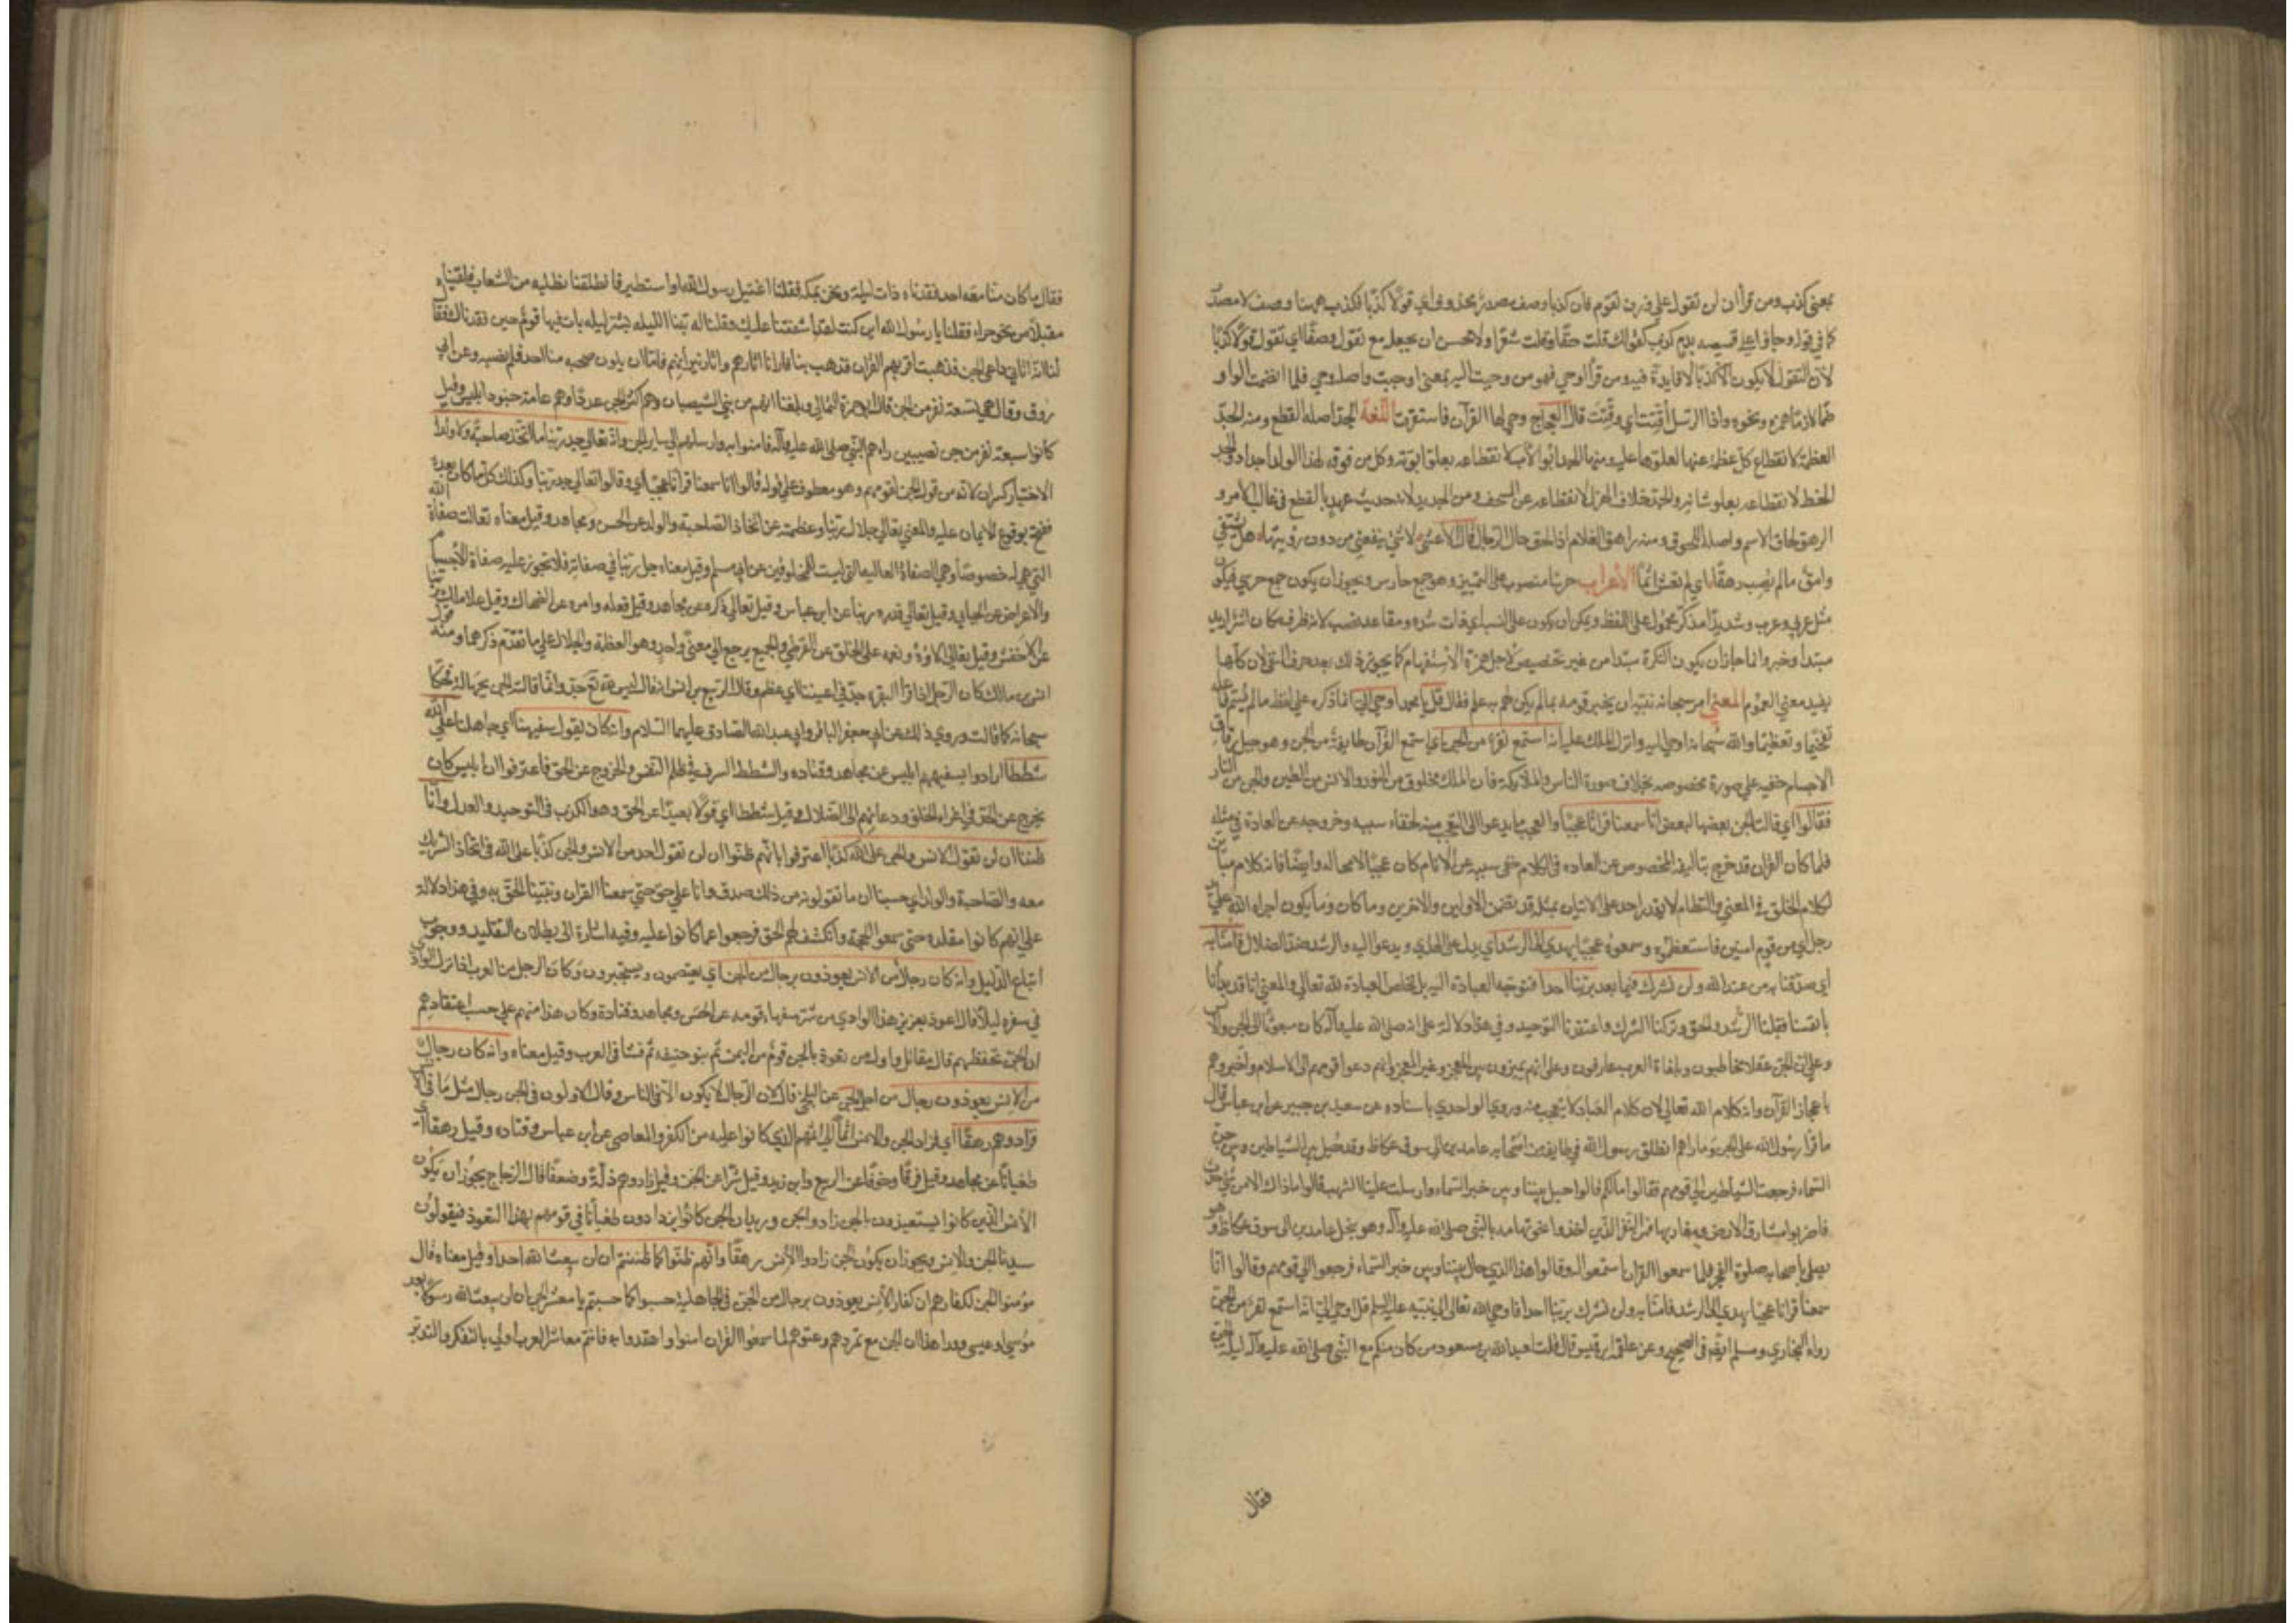 بمعنى كذب ومن قرأ ان لن تقول على وزن تقوّم فان كذبا وصف مصدر محذوف اي قولا كذبا فكذب ههنا وصف لا مصدر
كما في قوله وجاؤا على قميصه بدم كذب كقولك قلت حقا وقلت شعرا ولا يحسن ان يجعل مع تقول وصفا اي تقول قولا كذبا
لان التقول لا يكون الا كذبا لا فايدة فيه ومن قرأ اوحي فهو من وحيت اليه بمعنى اوحيت واصله وحي فلما انضمت الواو
ضما لازما همزت ونحوه واذا الرسل اقتت اي وقتت قال العجاج وحى لها القرآن فاستقرت اللغة الجد اصله القطع ومنه الجد
العظمة لانقطاع كل عظمة عنها لعلوها عليه ومنه الجد ابو الأب لانقطاعه بعلو ابوته وكل من فوقه لهذا الولد اجداد والجد
الحظ لانقطاعه بعلو شانه والجد خلاف الهزل لانقطاعه عن السخف ومن الجديد لانه حديث عهد بالقطع في غالب الامر و
الرهق لحاق الاثم واصله اللحوق ومنه راهق الغلام اذا لحق حال الرجال قال الاعشى لا شي ينفعني من دون رؤيتها هل يشتفي
وامق ما لم يصب رهقا اي لم يغش اثما الاعراب حرسا منصوب على التمييز وهو جمع حارس ويجوز ان يكون جمع حرسي فيكون
مثل عربي وعرب وشديدا مذكر محمول على اللفظ ويمكن ان يكون على النسب اي ذات شدة ومقاعد نصب لانه ظرف مكان اشر اريد
مبتدا وخبر وانما جاز ان يكون النكرة مبتدا من غير تخصيص لاجل همزة الاستفهام كما يجوز ذلك بعد حرف النفي لان كلاهما
يفيد معنى العموم المعنى امر سبحانه نبيه ان يخبر قومه بما لم يكن لهم به علم فقال قل يا محمد اوحي الي انما ذكره على لفظ ما لم يسم فاعله
تفخيما وتعظيما والله سبحانه اوحى اليه وانزل الملك عليه انه استمع نفر من الجن اي استمع القرآن طايفة من الجن وهو جيل رقاق
الاجسام خفيه على صورة مخصوصه بخلاف صورة الناس والملايكة فان الملك مخلوق من النور والانس من الطين والجن من النار
فقالوا اي قالت الجن بعضها لبعض انا سمعنا قرانا عجبا والعجب ما يدعو الى التعجب منه لخفاء سببه وخروجه عن العادة في مثله
فلما كان القران قد خرج بتاليفه المخصوص عن العاده في الكلام خفى سببه عن الانام كان عجبا لا محاله وايضا فانه كلام مباين
لكلام الخلق في المعنى والنظام لا يقدر احد على الاتيان بمثله قد تضمن الاولين والاخرين وما كان وما يكون اجراه الله على يد
رجل امي من قوم اميين فاستعظموه وسموه عجبا يهدي الى الرشد اي يدل على الهدى ويدعوا اليه والرشد ضد الضلال فآمنا به
اي صدقنا به من عند الله ولن نشرك فيما بعد بربنا احدا فنوجه العبادة اليه بل نخلص العبادة لله تعالى والمعنى انا قد بدأنا
بانفسنا فقبلنا الرشد والحق وتركنا الشرك واعتقدنا التوحيد وفي هذه دلالة على انه صلى الله عليه وآله كان مبعوثا الى الجن والانس
وعلى ان الجن عقلا مخاطبون وبلغاة العرب عارفون وعلى انهم يميزون بين المعجز وغير المعجز وانهم دعوا قومهم الى الاسلام واخبروهم
باعجاز القرآن وانه كلام الله تعالى لان كلام العباد لا يتعجب منه وروى الواحدي باسناده عن سعيد بن جبير عن ابن عباس قال
ما قرا رسول الله على الجن وما راهم انطلق رسول الله في طايفة من اصحابه عامدين الى سوق عكاظ وقد حيل بين الشياطين وبين خبر
السماء فرجعت الشياطين الى قومهم فقالوا ما لكم قالوا حيل بيننا وبين خبر السماء وارسلت علينا الشهب قالوا ما ذاك الا من شئ حدث
فاضربوا مشارق الارض ومغاربها فمر النفر الذين اخذوا نحو تهامه بالنبي صلى الله عليه وآله وهو بنخل عامدين الى سوق عكاظ وهو
يصلي باصحابه صلوة الفجر فلما سمعوا القران استمعوا له وقالوا هذا الذي حال بيننا وبين خبر السماء فرجعوا الى قومهم وقالوا انا
سمعنا قرانا عجبا يهدي الى الرشد فآمنا به ولن نشرك بربنا احدا فاوحى الله تعالى الى نبيه عليه السلم قل اوحي الي انه استمع نفر من الجن
رواه البخاري ومسلم ايضا في الصحيح وعن علقمة بن قيس قال قلت لعبد الله بن مسعود من كان منكم مع النبي صلى الله عليه وآله ليلة الجن
فقال
فقال ما كان منا معه احد فقدناه ذات ليلة ونحن بمكة فقلنا اغتيل رسول الله او استطير فانطلقنا نطلبه من الشعاب فلقيناه
مقبلا من نحو حراء فقلنا يا رسول الله اين كنت لقد اشفقنا عليك وقلنا له بتنا الليله بشر ليله بات فيها قوم حين فقدناك فقال
لنا انه اتاني داعي الجن فذهبت اقريهم القران فذهب بنا فارانا اثارهم واثار نيرانهم فاما ان يكون صحبه منا احد فلم يصحبه وعن ابي
روق وقال هم تسعة نفر من الجن قال ابو حمزة الثمالي وبلغنا انهم من بني الشيصبان وهم اكثر الجن عددا وهم عامة جنود ابليس وقيل
كانوا سبعة نفر من جن نصيبين راهم النبي صلى الله عليه وآله فامنوا به وارسلهم الى ساير الجن وانه تعالى جد ربنا ما اتخذ صاحبة ولا ولدا
الاختيار كسر ان لانه من قول الجن لقومهم وهو معطوف على قوله قالوا انا سمعنا قرانا عجبا اي وقالوا تعالى جد ربنا وكذلك كل ما كان بعده
ففتح بوقوع الايمان عليه والمعنى تعالى جلال ربنا وعظمته عن اتخاذ الصاحبة والولد عن الحسن ومجاهد وقيل معناه تعالت صفاة الله
التي هي له خصوصا وهي الصفاة العاليه التي ليست للمخلوقين عن ابي مسلم وقيل معناه جل ربنا في صفاته فلا تجوز عليه صفاة الاجسام
والاعراض عن الجبايي وقيل تعالى قدرة ربنا عن ابن عباس وقيل تعالى ذكره عن مجاهد وقيل فعله وامره عن الضحاك وقيل علا ملك ربنا
عن الاخفش وقيل تعالى آلاؤه ونعمه على الخلق عن القرظي والجميع يرجع الى معنى واحد وهو العظمة والجلال على ما تقدم ذكرهما ومنه قول
انس بن مالك كان الرجل اذا قرأ البقرة جد في اعيننا اي عظم وقال الربيع بن انس انه قال ليس لله تع جد وانما قالته الجن بجهالة فحكاه
سبحانه كما قالت وروي ذلك عن ابي جعفر الباقر وابي عبد الله الصادق عليهما السلام وانه كان يقول سفيهنا اي جاهلنا على الله
شططا ارادوا بسفيههم ابليس عن مجاهد وقتاده والشطط السرف في ظلم النفس والخروج عن الحق فاعترفوا ان ابليس كان
يخرج عن الحق في اغراء الخلق ودعائهم الى الضلال وقيل شططا اي قولا بعيدا عن الحق وهو الكذب في التوحيد والعدل وانا
ظننا ان لن تقول الانس والجن على الله كذبا اعترفوا بانهم ظنوا ان لن تقول احد من الانس والجن كذبا على الله في اتخاذ الشريك
معه والصاحبة والولد اي حسبنا ان ما تقولونه من ذلك صدق وانا على حق حتى سمعنا القران وتبينا الحق به وفي هذا دلالة
على انهم كانوا مقلده حتى سمعوا الحجة وانكشف لهم الحق فرجعوا عما كانوا عليه وفيه اشارة الى بطلان التقليد ووجوب
اتباع الدليل وانه كان رجال من الانس يعوذون برجال من الجن اي يعتصمون ويستجيرون وكان الرجل من العرب اذا نزل الوادي
في سفره ليلا قال اعوذ بعزيز هذا الوادي من شر سفهاء قومه عن الحسن ومجاهد وقتادة وكان هذا منهم على حسب اعتقادهم
ان الجن تحفظهم قال مقاتل واول من تعوذ بالجن قوم من اليمن ثم بنو حنيفه ثم فشا في العرب وقيل معناه وانه كان رجال
من الانس يعوذون برجال من اجل الجن عن البلخي قال لان الرجال لا يكون الا في الناس وقال الاولون في الجن رجال مثل ما في الانس
فزادوهم رهقا اي فزاد الجن والانس اثما الى اثمهم الذي كانوا عليه من الكفر والمعاصي عن ابن عباس وقتاده وقيل رهقا اي
طغيانا عن مجاهد وقيل فرقا وخوفا عن الربيع وابن زيد وقيل شرا عن الحسن وقيل زادوهم ذلة وضعفا قال الزجاج يجوز ان يكون
الانس الذين كانوا يستعيذون بالجن زادوا الجن رهقا وذلك ان الجن كانوا يزدادون طغيانا في قومهم بهذا التعوذ فيقولون
سدنا الجن والانس ويجوز ان يكون الجن زادوا الانس رهقا وانهم ظنوا كما ظننتم ان لن يبعث الله احدا وقيل معناه قال
مؤمنوا الجن لكفارهم ان كفار الانس يعوذون برجال من الجن في الجاهلية حسبوا كما حسبتم يا معشر الجن ان لن يبعث الله رسولا بعد
موسى او عيسى وورا هذا ان الجن مع تمردهم وعتوهم لما سمعوا القران امنوا واهتدوا به فانتم معاشر العرب اولى بالتفكر والتدبر